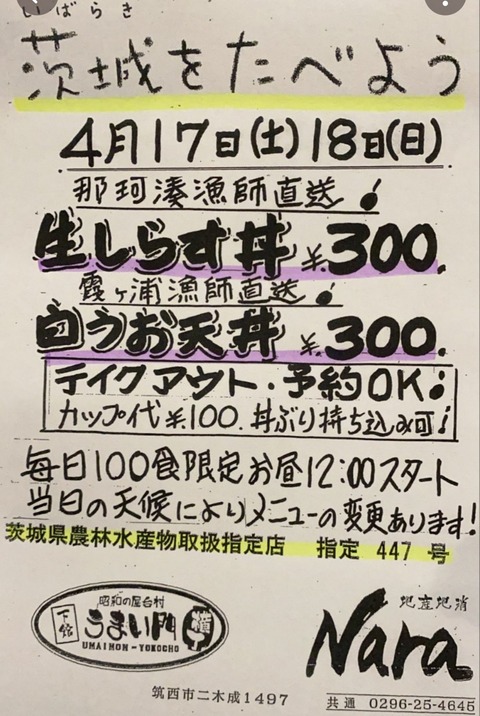 いばらき
茨城をたべよう
4月17日(土)18日(日)
那珂湊漁師直送!
生しらす丼 ¥300.
霞ヶ浦漁師直送!
白うお天丼 ¥300.
テイクアウト・予約OK!
カップ代¥100. 丼ぶり持ち込み可!
毎日100食限定お昼12:00スタート
当日の天候によりメニューの変更あります!
茨城県農林水産物取扱指定店 指定 447 号
昭和の屋台村
下館 うまい門 横丁
UMAIMON-YOKOCHO
地産地消
Nara
筑西市二木成1497
共通 0296-25-4645